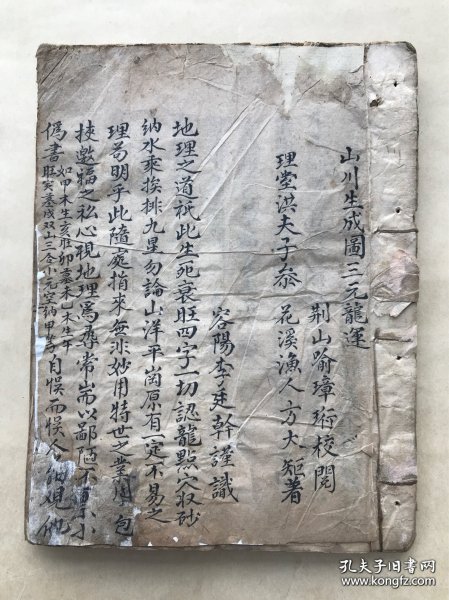 山川生成圖三元龍運
荆山喻璋珩校閲
花溪漁人方大矩著
理堂洪夫子叅
容陽李廷幹謹識
地理之道祇此生死衰旺四字一切認龍點穴收砂
納水乘挨排九星勿論山洋平崗原有一定不易之
理苟明乎此隨處指來無非妙用特世之業
包
挾邀福之私心視地理爲尋常而以鄙陋不
小
僞書
如甲木生亥旺卯墓未乙木生午
旺寅墓戌双山三合小元空納甲
自悞而悞人
孔夫子旧书网
book.kongfz.com